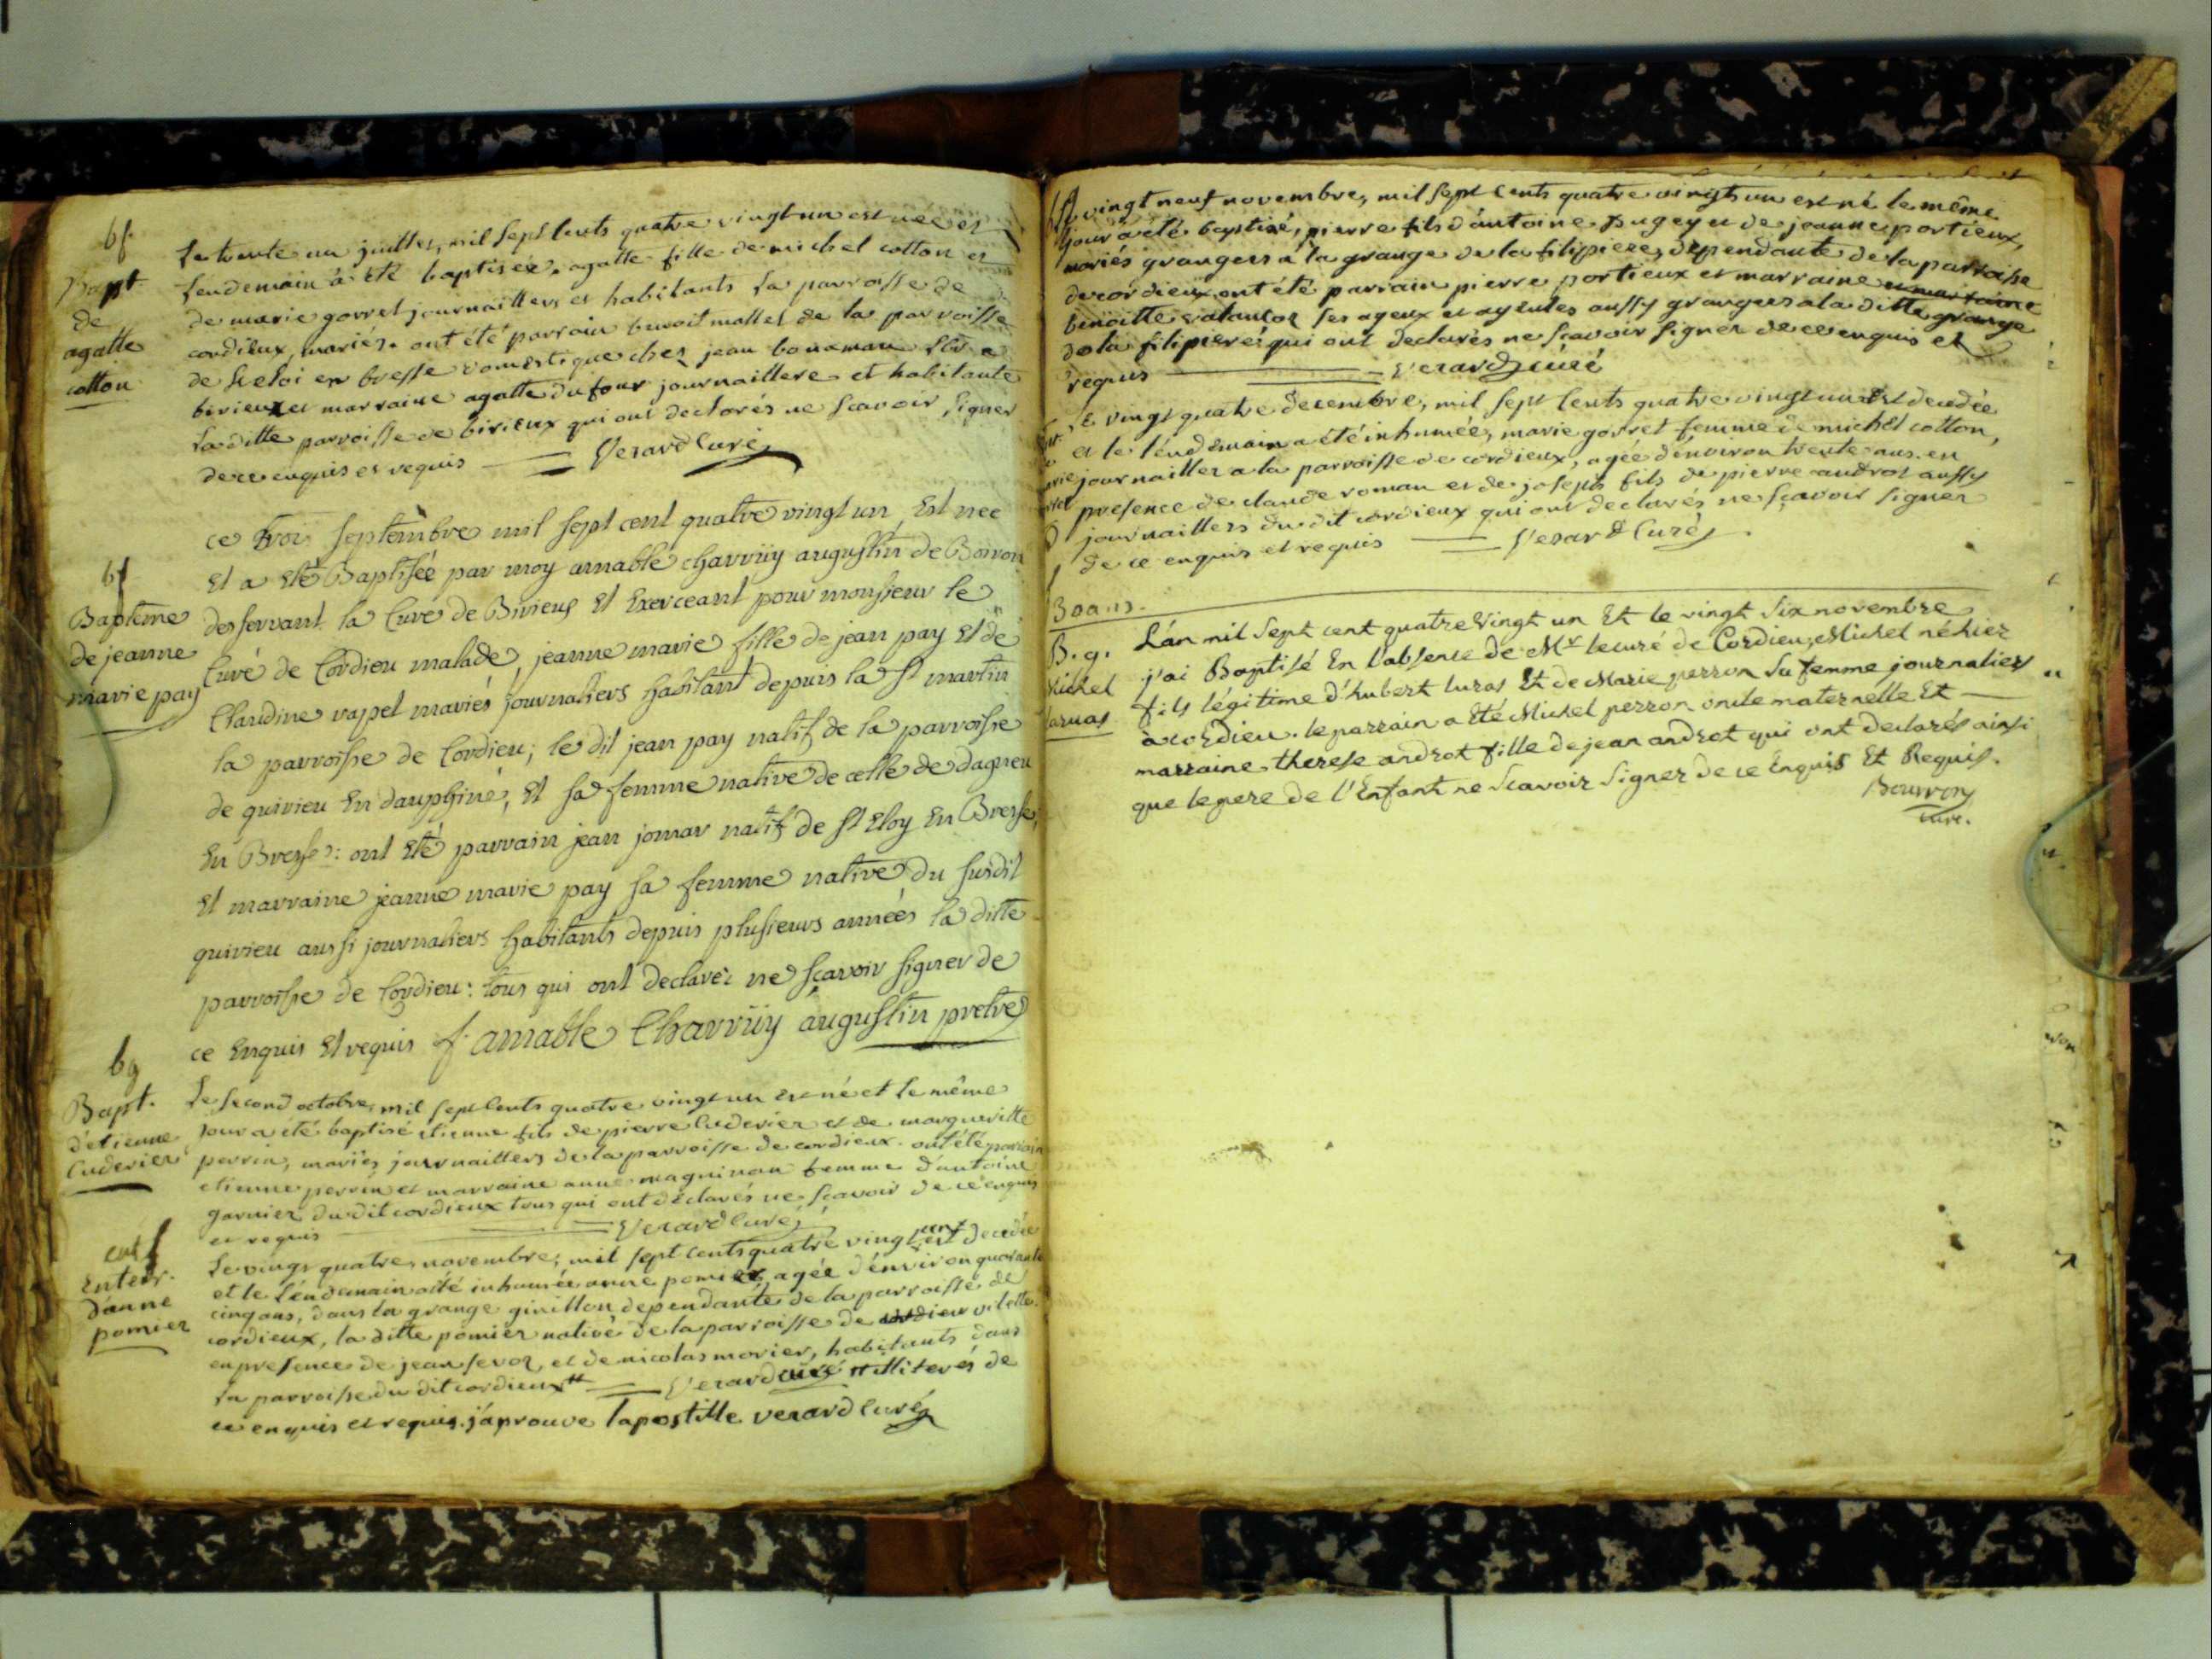 bf.
Bapt
de
agatte
cotton
Le trente un juillet, mil sept cents quatre vingt un est née et
lendemain a été baptisée agatte fille de michel cotton et
de marie gorret journailliers et habitants la parroisse de
cordieux, mariés. ont été parrain benoit mallet de la parroisse
de st eloi en bresse domestique chez jean bonaman
birieux et marraine agatte dufour journailliere et habitante
la ditte parroisse de birieux qui ont declarés ne scavoir signer
de ce enquis et requis Verard curé
bf
Baptême
de jeanne
marie pay
ce trois septembre mil sept cent quatre vingt un, Est née
Et a Eté Baptisée par moy amable charruÿ augustin de
desservant la Cure de Birieus Et Exerceant pour monsieur le
Curé de Cordieu malade, jeanne marie fille de jean pay Et de
Claudine rapel mariés journaliers habitant depuis la St martin
la parroisse de Cordieu; le dit jean pay natif de la parroisse
de quirieu En dauphiné, Et sa femme native de celle de dagneu
En Bresse: ont Eté parrain jean jomar natif de St Eloy En Bresse,
Et marraine jeanne marie pay sa femme native du susdit
quirieu aussi journaliers habitants depuis plusieurs années la ditte
parroisse de Cordieu: tous qui ont declarés ne sçavoir signer de
ce Enquis Et requis f. amable Charruÿ augustin pretre
bg
Bapt.
d'etienne
Cuderier
Le second octobre, mil sept cents quatre vingt un est né et le même
jour a eté baptisé etienne fils de pierre Cuderier et de margueritte
perrin, mariés journailliers de la parroisse de cordieux. ont été parrain
etienne perrin et marraine anne magninan femme d'antoine
garnier du dit cordieux tous qui ont déclarés ne scavoir de ce enquis
et requis Verard curé
Enterr.
d'anne
pomier
Le vingt quatre novembre, mil sept cents quatre vingt un est decedée
et le lendemain a été inhumée anne pomier, agée d'environ quarante
cinq ans, dans la grange ginillon dependante de la parroisse de
cordieux, la ditte pomier native de la parroisse de cordieux vilette.
en presence de jean sevoz, et de nicolas morier, habitants dans
la parroisse du dit cordieux Verard curé illiterés de
ce enquis et requis. j'aprouve l'apostille verard curé
Le vingt neuf novembre, mil sept cents quatre vingts un est né le même
jour a eté baptisé, pierre fils d'antoine Bugey et de jeanne portieux,
mariés grangers a la grange de la filipiere, dependante de la parroisse
de cordieux ont été parrain pierre portieux et marraine et marraine
benoitte valancoz ses ayeux et ayeules aussy grangers a la ditte grange
de la filipiere qui ont declarés ne scavoir signer de ce enquis et
requis Verard curé
Le vingt quatre decembre, mil sept cents quatre vingt un est decedée
et le lendemain a été inhumée, marie gorret femme de michel cotton,
journaillier a la parroisse de cordieux, agée d'environ trente ans. en
presence de claude roman et de joseph fils de pierre androt aussy
journailliers du dit cordieux qui ont declarés ne sçavoir signer
de ce enquis et requis Verard Curé
B.g.
Michel
L'an mil sept cent quatre Vingt un Et le vingt six novembre
j'ai Baptisé En l'absence de Mr le curé de Cordieu, Michel né hier
fils légitime d'hubert Et de Marie perron sa femme journaliers
à cordieu. le parrain a Eté Michel perron oncle maternelle Et
marraine therese androt fille de jean androt qui ont declarés ainsi
que le pere de l'Enfant ne scavoir signer de ce Enquis Et Requis.
Bourron
curé.